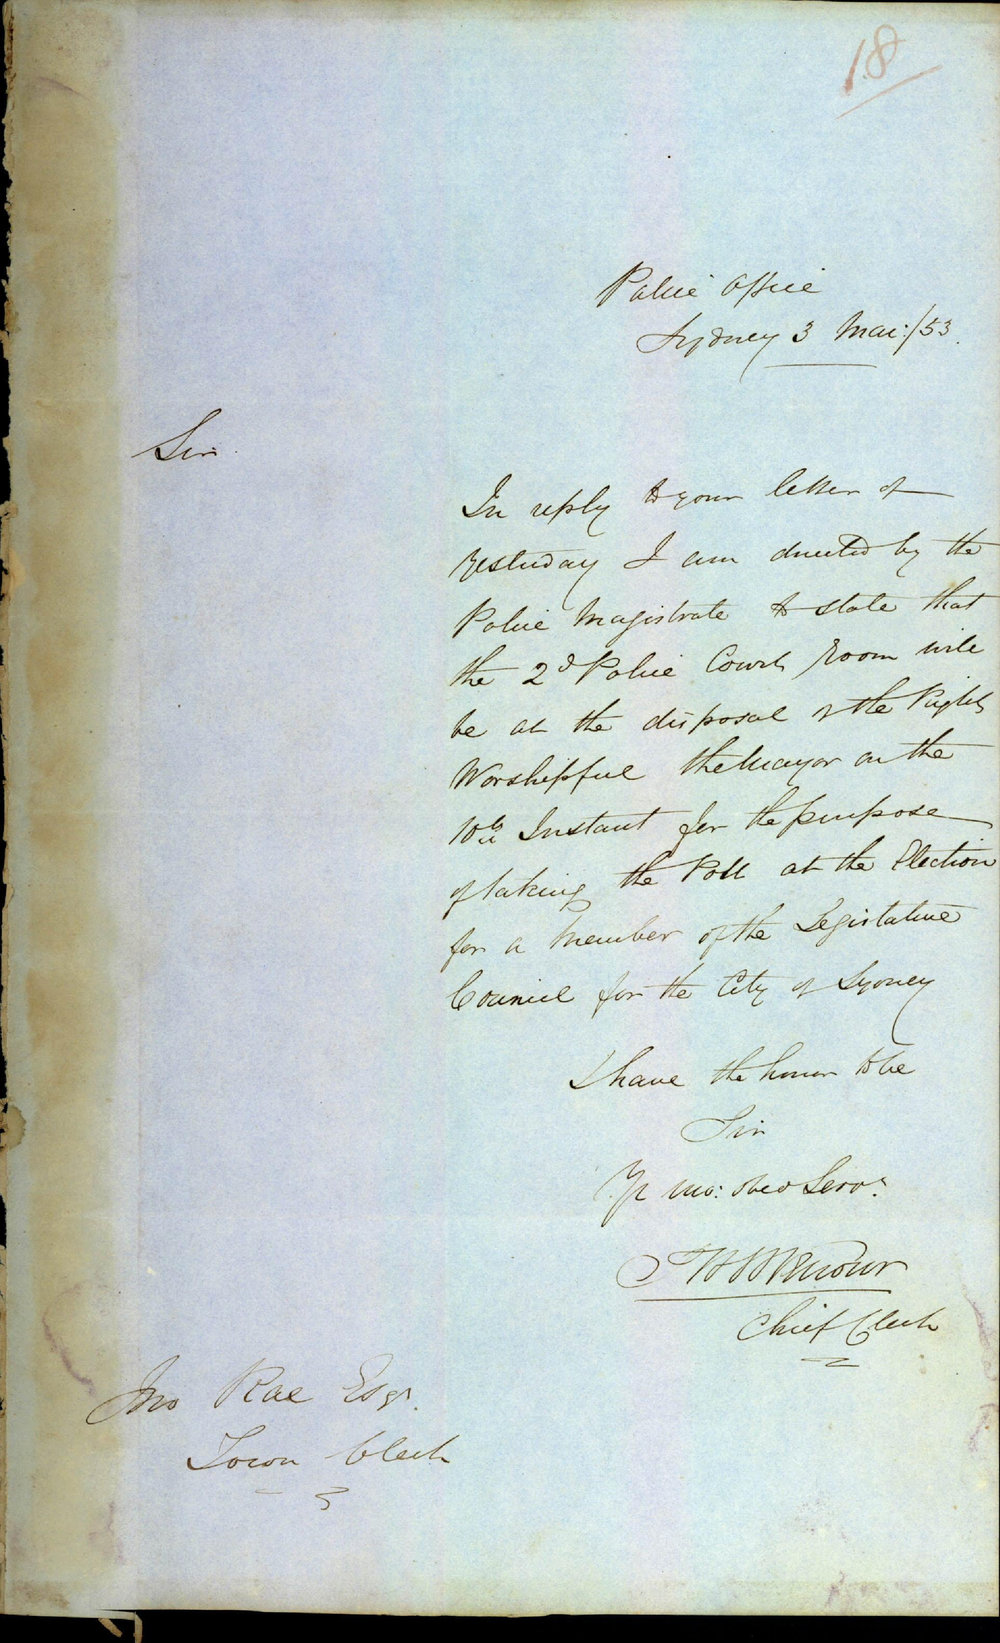 18
Police Office
Sydney 3 Mar:/53.
Sir
In reply to your letter of
yesterday I am directed by the
Police Magistrate to state that
the 2d Police Court room will
be at the disposal of the Right
Worshipful the Mayor on the
10th Instant for the purpose
of taking the Poll at the Election
for a Member of the Legislative
Council for the City of Sydney
I have the honor to be
Sir
Yr mo: obed Servt
Chief Clerk
Jno Rae Esqr.
Town Clerk